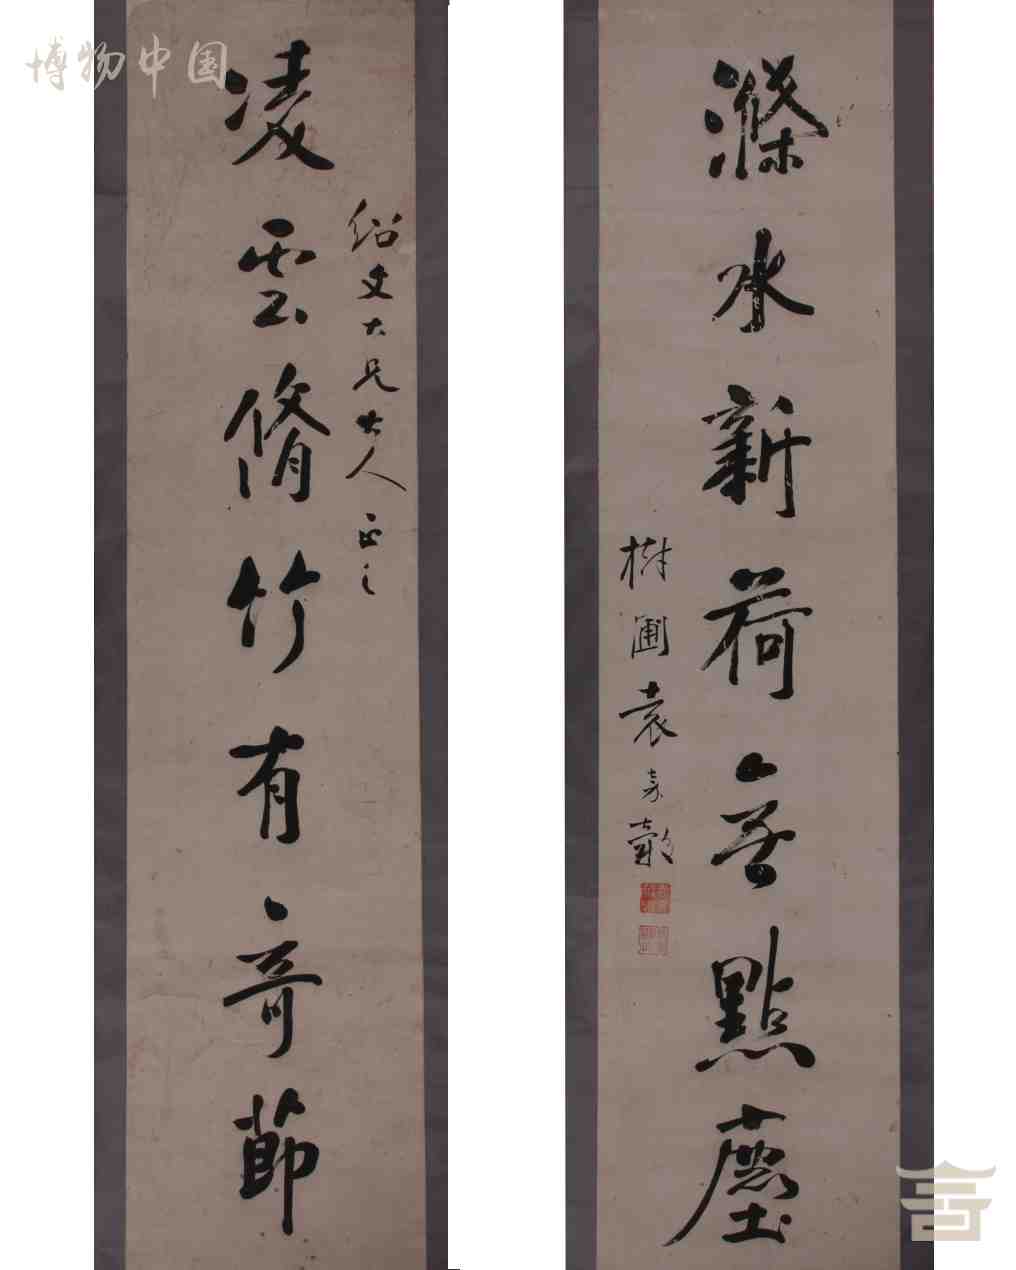 博物中国
凌雲脩竹有奇節
绍文大兄大人正之
滌水新荷無點塵
樹圃袁嘉穀